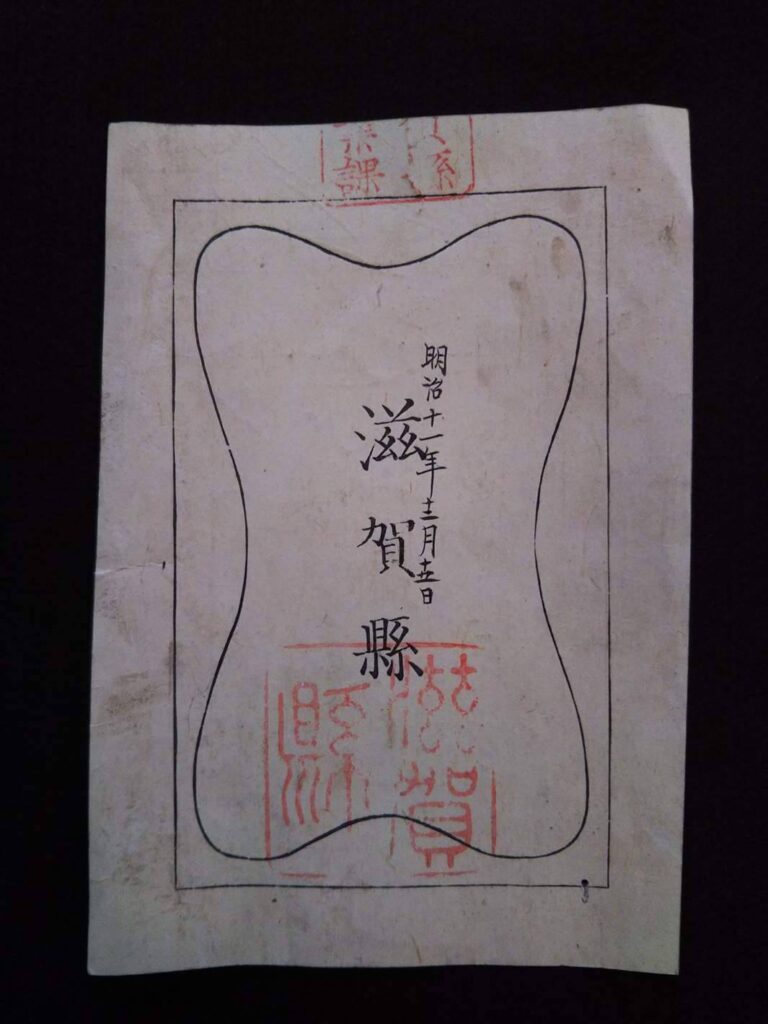 課
明治十一年十二月十五日
滋賀縣
滋賀
縣